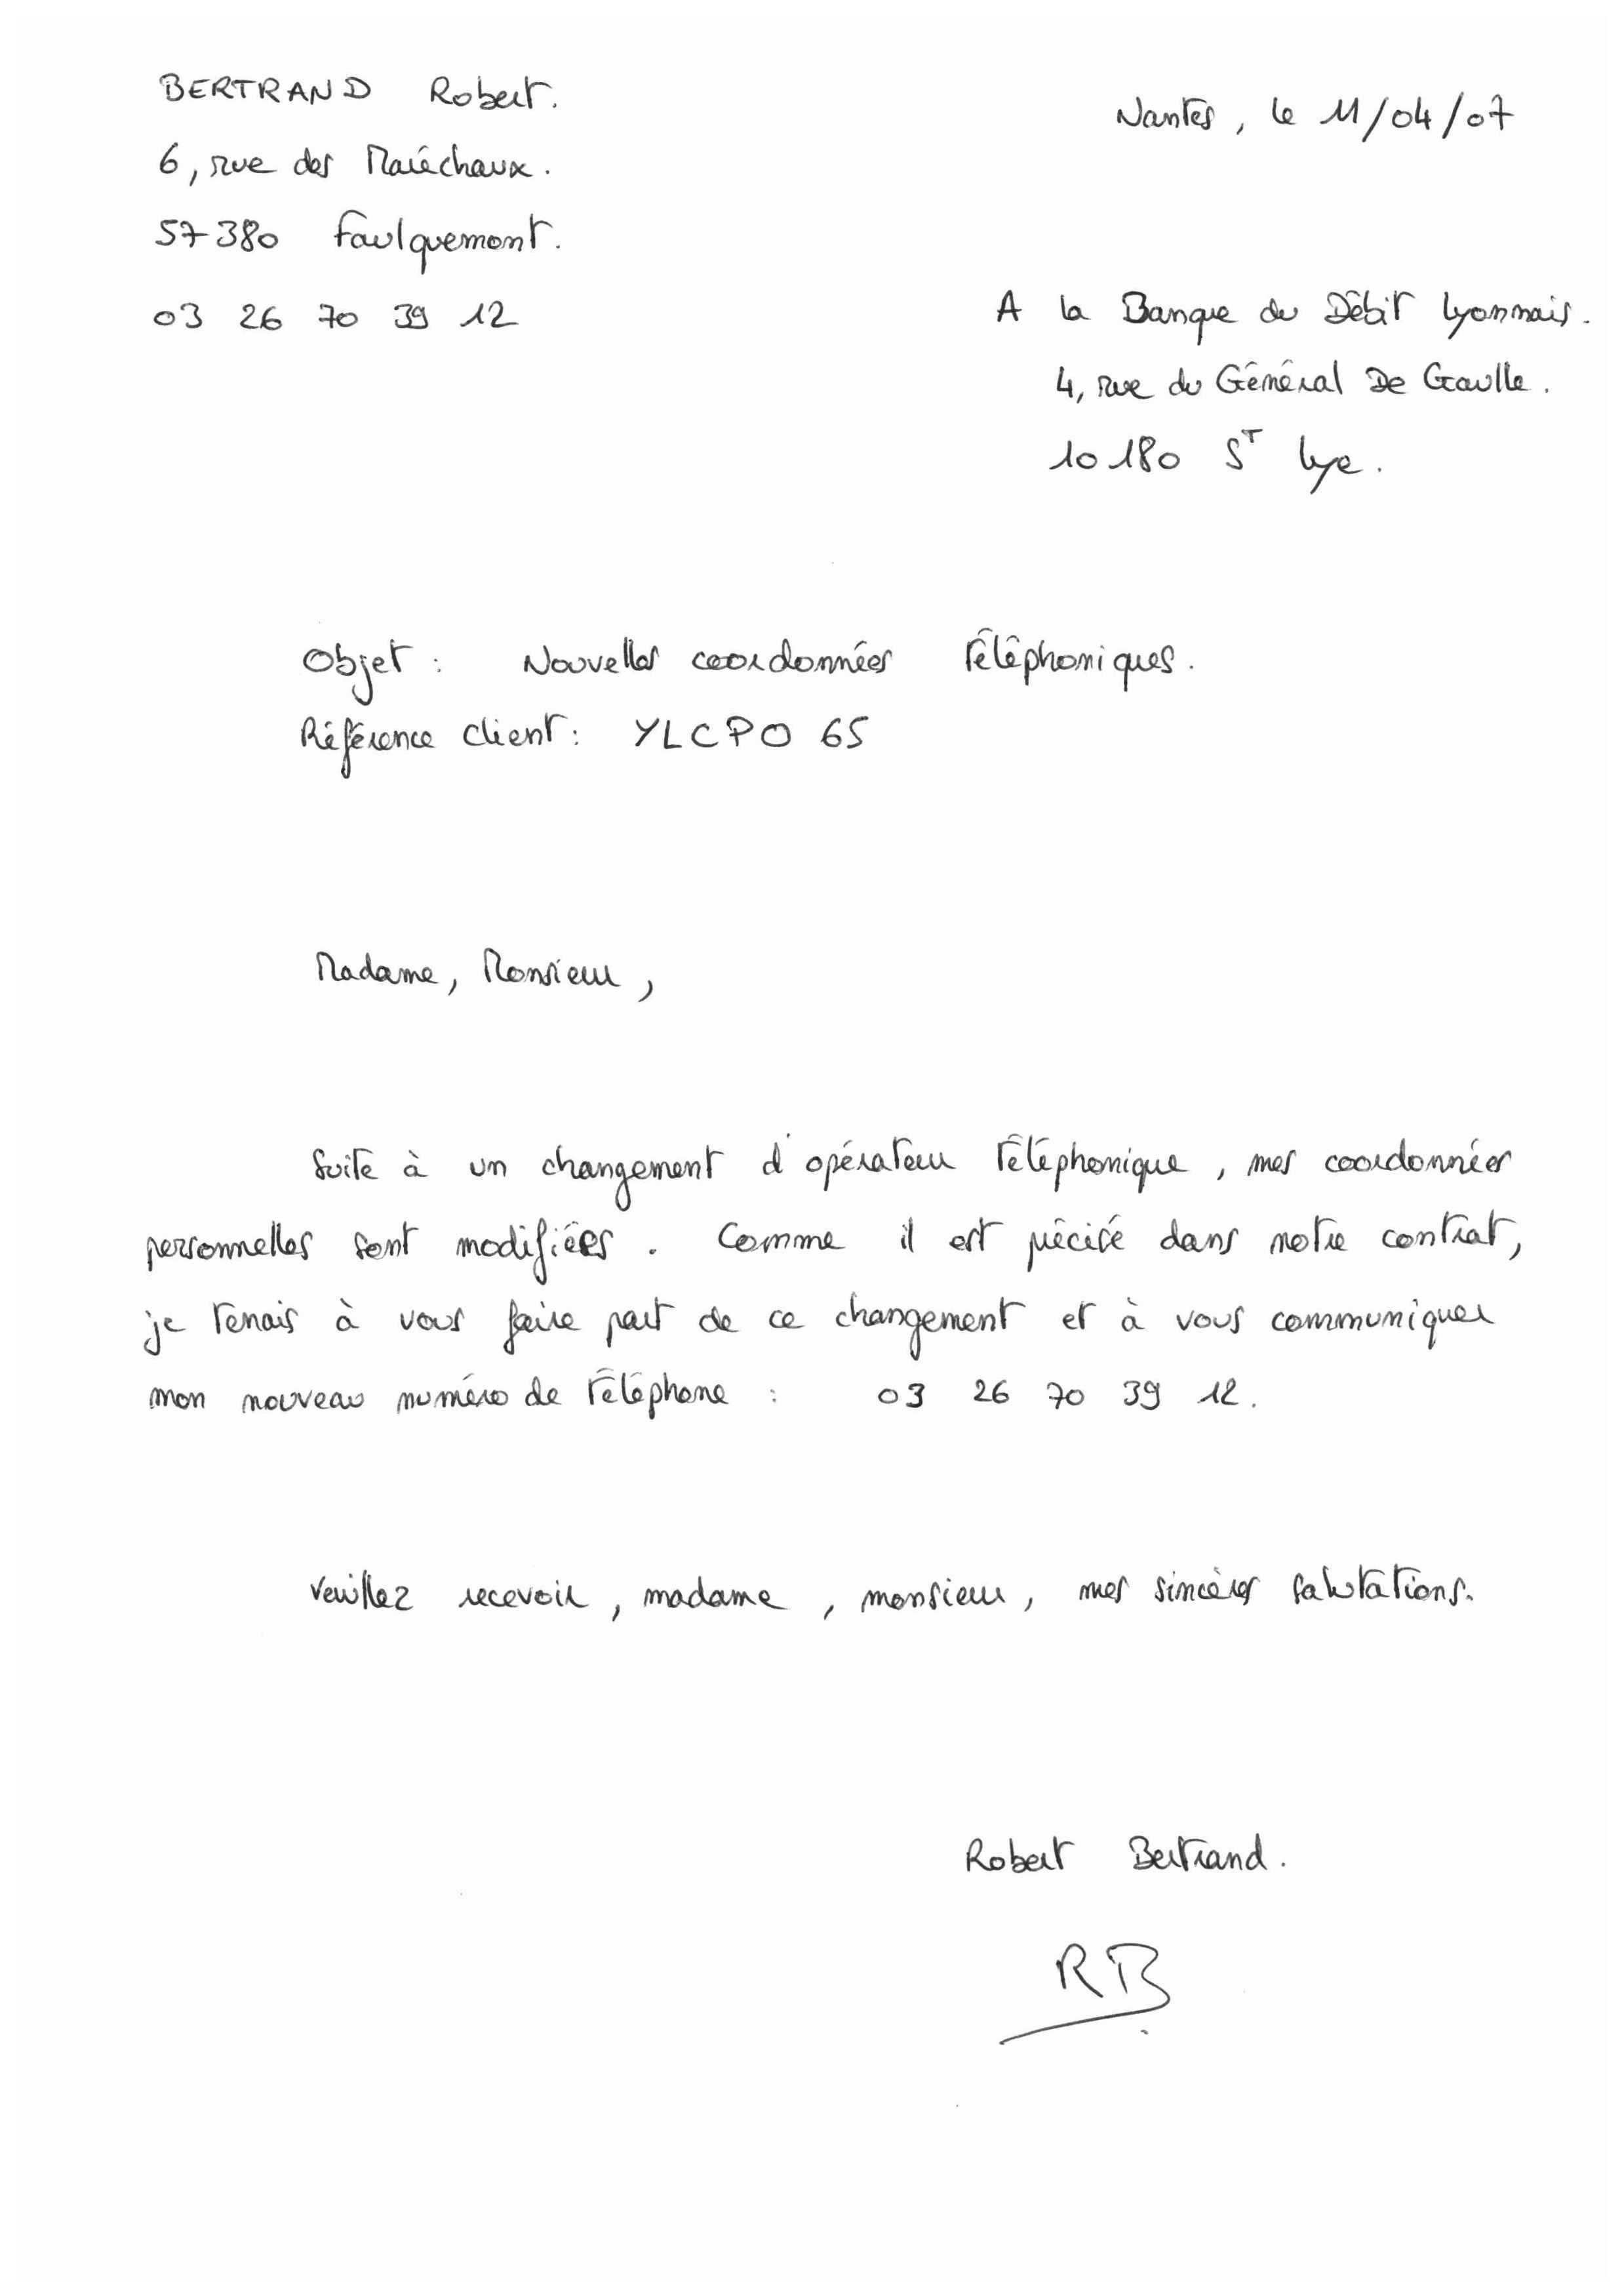 BERTRAND Robert.
6, rue des Maréchaux.
57380 Faulquemont.
03 26 70 39 12
Nantes, le 11/04/07
A la Banque du Débit Lyonnais.
4, rue du Général De Gaulle.
10180 St Lye.
Objet : Nouvelles coordonnées téléphoniques.
Référence client : YLCPO 65
Madame, Monsieur,
Suite à un changement d'opérateur téléphonique, mes coordonnées
personnelles sont modifiées. Comme il est précisé dans notre contrat,
je tenais à vous faire part de ce changement et à vous communiquer
mon nouveau numéro de téléphone : 03 26 70 39 12.
Veuillez recevoir, madame, monsieur, mes sincères salutations.
Robert Bertrand.
RB